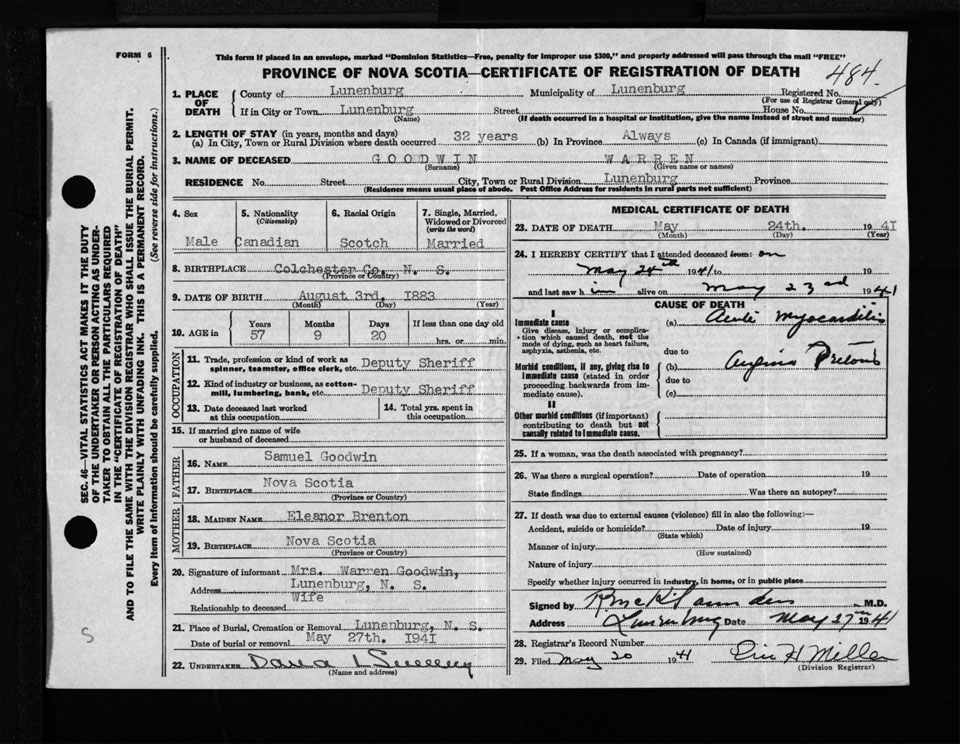 FORM 6
This form if placed in an envelope, marked "Dominion Statistics—Free, penalty for improper use $300," and properly addressed will pass through the mail "FREE"
PROVINCE OF NOVA SCOTIA—CERTIFICATE OF REGISTRATION OF DEATH
484.
1. PLACE OF DEATH
County of Lunenburg Municipality of Lunenburg Registered No.
(For use of Registrar General only)
If in City or Town Lunenburg Street House No.
(Name) (If death occurred in a hospital or institution, give the name instead of street and number)
2. LENGTH OF STAY (in years, months and days)
(a) In City, Town or Rural Division where death occurred 32 years (b) In Province Always (c) In Canada (if immigrant)
3. NAME OF DECEASED GOODWIN WARREN
(Surname) (Given name or names)
RESIDENCE No. Street City, Town or Rural Division Lunenburg Province
(Residence means usual place of abode. Post Office Address for residents in rural parts not sufficient)
4. Sex
Male
5. Nationality
(Citizenship)
Canadian
6. Racial Origin
Scotch
7. Single, Married, Widowed or Divorced
(write the word)
Married
8. BIRTHPLACE Colchester Co. N. S.
(Province or Country)
9. DATE OF BIRTH August 3rd, 1883
(Month) (Day) (Year)
10. AGE in
Years Months Days If less than one day old
57 9 20 hrs. or min.
OCCUPATION
11. Trade, profession or kind of work as
spinner, teamster, office clerk, etc. Deputy Sheriff
12. Kind of industry or business, as cotton-
mill, lumbering, bank, etc. Deputy Sheriff
13. Date deceased last worked
at this occupation
14. Total yrs. spent in
this occupation
15. If married give name of wife
or husband of deceased
FATHER
16. NAME Samuel Goodwin
17. BIRTHPLACE Nova Scotia
(Province or Country)
MOTHER
18. MAIDEN NAME Eleanor Brenton
19. BIRTHPLACE Nova Scotia
(Province or Country)
20. Signature of informant Mrs. Warren Goodwin,
Address Lunenburg, N. S.
Relationship to deceased Wife
21. Place of Burial, Cremation or Removal Lunenburg, N. S.
Date of burial or removal May 27th. 1941
22. UNDERTAKER
(Name and address)
MEDICAL CERTIFICATE OF DEATH
23. DATE OF DEATH May 24th. 1941
(Month) (Day) (Year)
24. I HEREBY CERTIFY that I attended deceased from: on
May 24th 1941 to 19
and last saw him alive on May 23rd 1941
CAUSE OF DEATH
I
Immediate cause
Give disease, injury or complication which caused death, not the mode of dying, such as heart failure, asphyxia, asthenia, etc.
(a) Acute Myocarditis
due to
Morbid conditions, if any, giving rise to immediate cause (stated in order proceeding backwards from immediate cause).
(b) Angina Pectoris
due to
(c)
II
Other morbid conditions (if important) contributing to death but not causally related to immediate cause.
25. If a woman, was the death associated with pregnancy?
26. Was there a surgical operation? Date of operation 19
State findings Was there an autopsy?
27. If death was due to external causes (violence) fill in also the following:—
Accident, suicide or homicide? Date of injury 19
(State which)
Manner of injury
(How sustained)
Nature of injury
Specify whether injury occurred in industry, in home, or in public place
Signed by M.D.
Address Lunenburg Date May 27th 1941
28. Registrar's Record Number
29. Filed May 20 1941 Miller
(Division Registrar)
SEC. 46—VITAL STATISTICS ACT MAKES IT THE DUTY
OF THE UNDERTAKER OR PERSON ACTING AS UNDER-
TAKER TO OBTAIN ALL THE PARTICULARS REQUIRED
IN THE "CERTIFICATE OF REGISTRATION OF DEATH"
AND TO FILE THE SAME WITH THE DIVISION REGISTRAR WHO SHALL ISSUE THE BURIAL PERMIT.
WRITE PLAINLY WITH UNFADING INK. THIS IS A PERMANENT RECORD.
Every item of information should be carefully supplied. (See reverse side for instructions.)
S